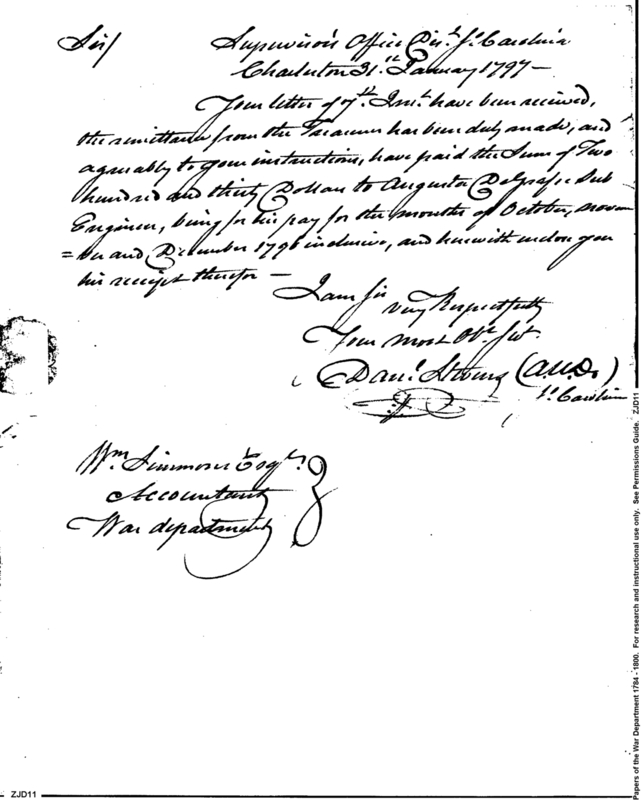 Sir/ Supervisor's Office Dis.t So. Carolina
Charleston 31.st January 1797 —
Your letter of 9.th Inst. have been received,
the remittance from the Treasurer has been duly made, and
agreeably to your instructions, have paid the Sum of Two
hundred and thirty Dollars to Augustus DeGrasse Sub
Engineer, being for his pay for the months of October, novem
=ber and December 1796 inclusive, and herewith enclose you
his receipt therefor —
I am Sir
very Respectfully
Your most Ob.t Sv.t
Dan.l Stevens
So. Carolina
Wm Simmons Esq.r
Accountant
War department
ZJD11
Papers of the War Department 1784 - 1800. For research and instructional use only. See Permissions Guide. ZJD11